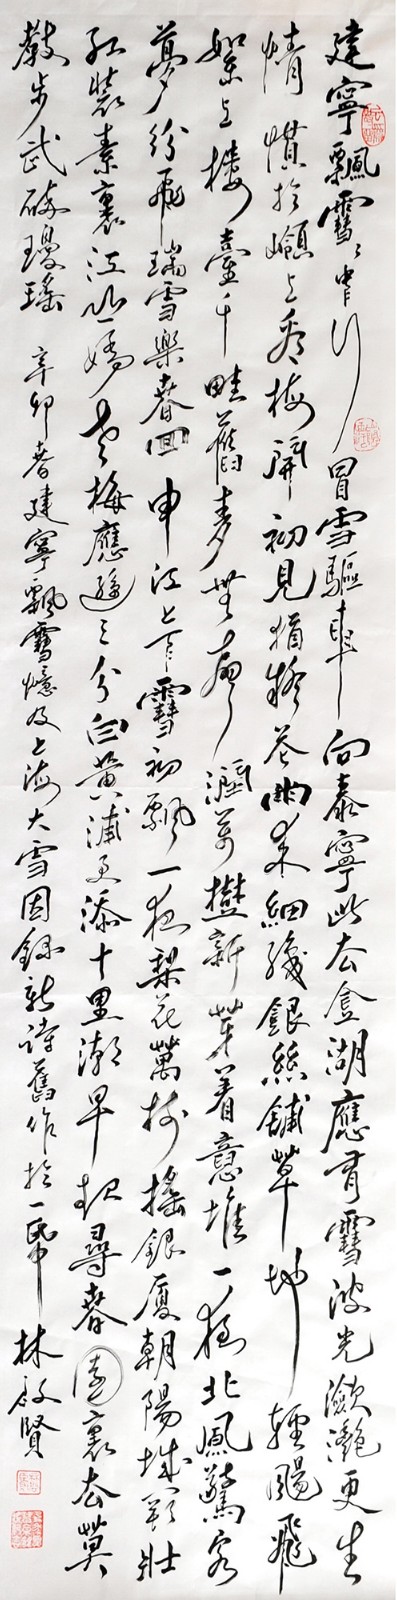 建寧飄雪〻中行冒雪驅車向泰寧此去金湖應有雪波光瀲灧更生
情慣於嶺上看梅開初見猶疑雨來細綫銀絲鋪草地輕颺飛
絮上樓臺千畦舊麥無聲潤萬新芽着意堆一夜北風驚客
夢紛飛瑞雪樂春回申江上下雪初飄一夜梨花萬樹搖銀厦朝陽城競壯
紅裝素裹江山嬌老梅應遜三分白黃浦更添十里潮早起尋春園裏去莫
教步武碎瓊瑤 辛卯春建寧飄雪憶及上海大雪因錄新詩舊作於一帋 林啟賢